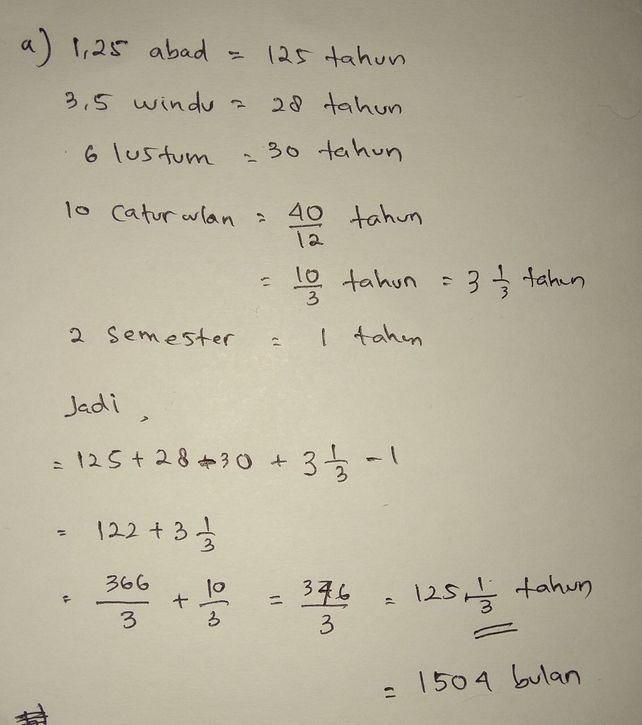 a) 1,25 abad = 125 tahun
3,5 windu = 28 tahun
6 lustum = 30 tahun
10 Caturwlan = 40/12 tahun
= 10/3 tahun = 3 1/3 tahun
2 Semester = 1 tahun
Jadi,
= 125 + 28 - 30 + 3 1/3 - 1
= 122 + 3 1/3
= 366/3 + 10/3 = 376/3 = 125 1/3 tahun
= 1504 bulan